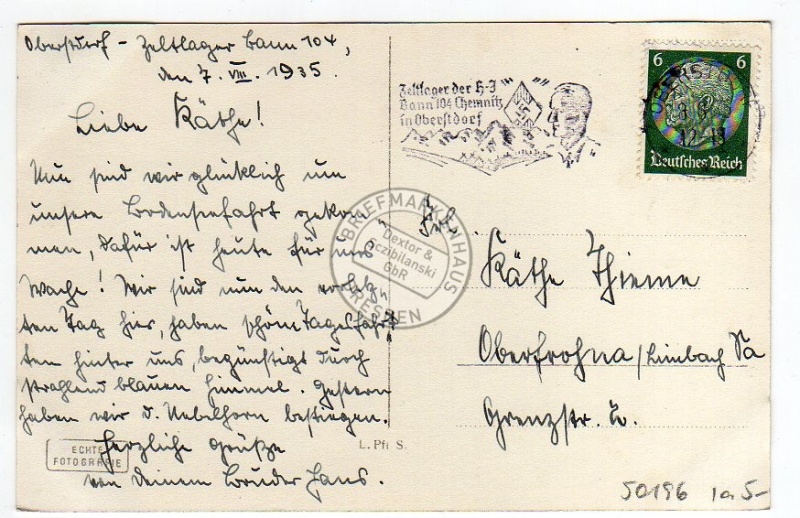 Oberstdorf - Zeltlager Bann 104,
den 7. VIII. 1935.
Liebe Käthe!
Nun sind wir glücklich um
unsere Bodenseefahrt gekom
men, dafür ist heute für uns
Wache! Wir sind nun den
ten Tag hier, haben schöne Tagesfahrt
ten hinter uns, begünstigt durch
strahlend blauen Himmel. Gestern
haben wir d. Nebelhorn bestiegen.
Herzliche Grüße
von Deinem Bruder Hans.
ECHTE
FOTOGRAFIE
L. Pfi S.
Zeltlager der H-J
Bann 104 Chemnitz
in Oberstdorf
6 6
OBERSTD
12-13
Deutsches Reich
BRIEFMARKENHAUS
Dextor &
Sczibilanski
GbR
DRESDEN
Frl.
Käthe Thieme
Oberfrohna/Limbach Sa
Grenzstr.
50196 1a 5-